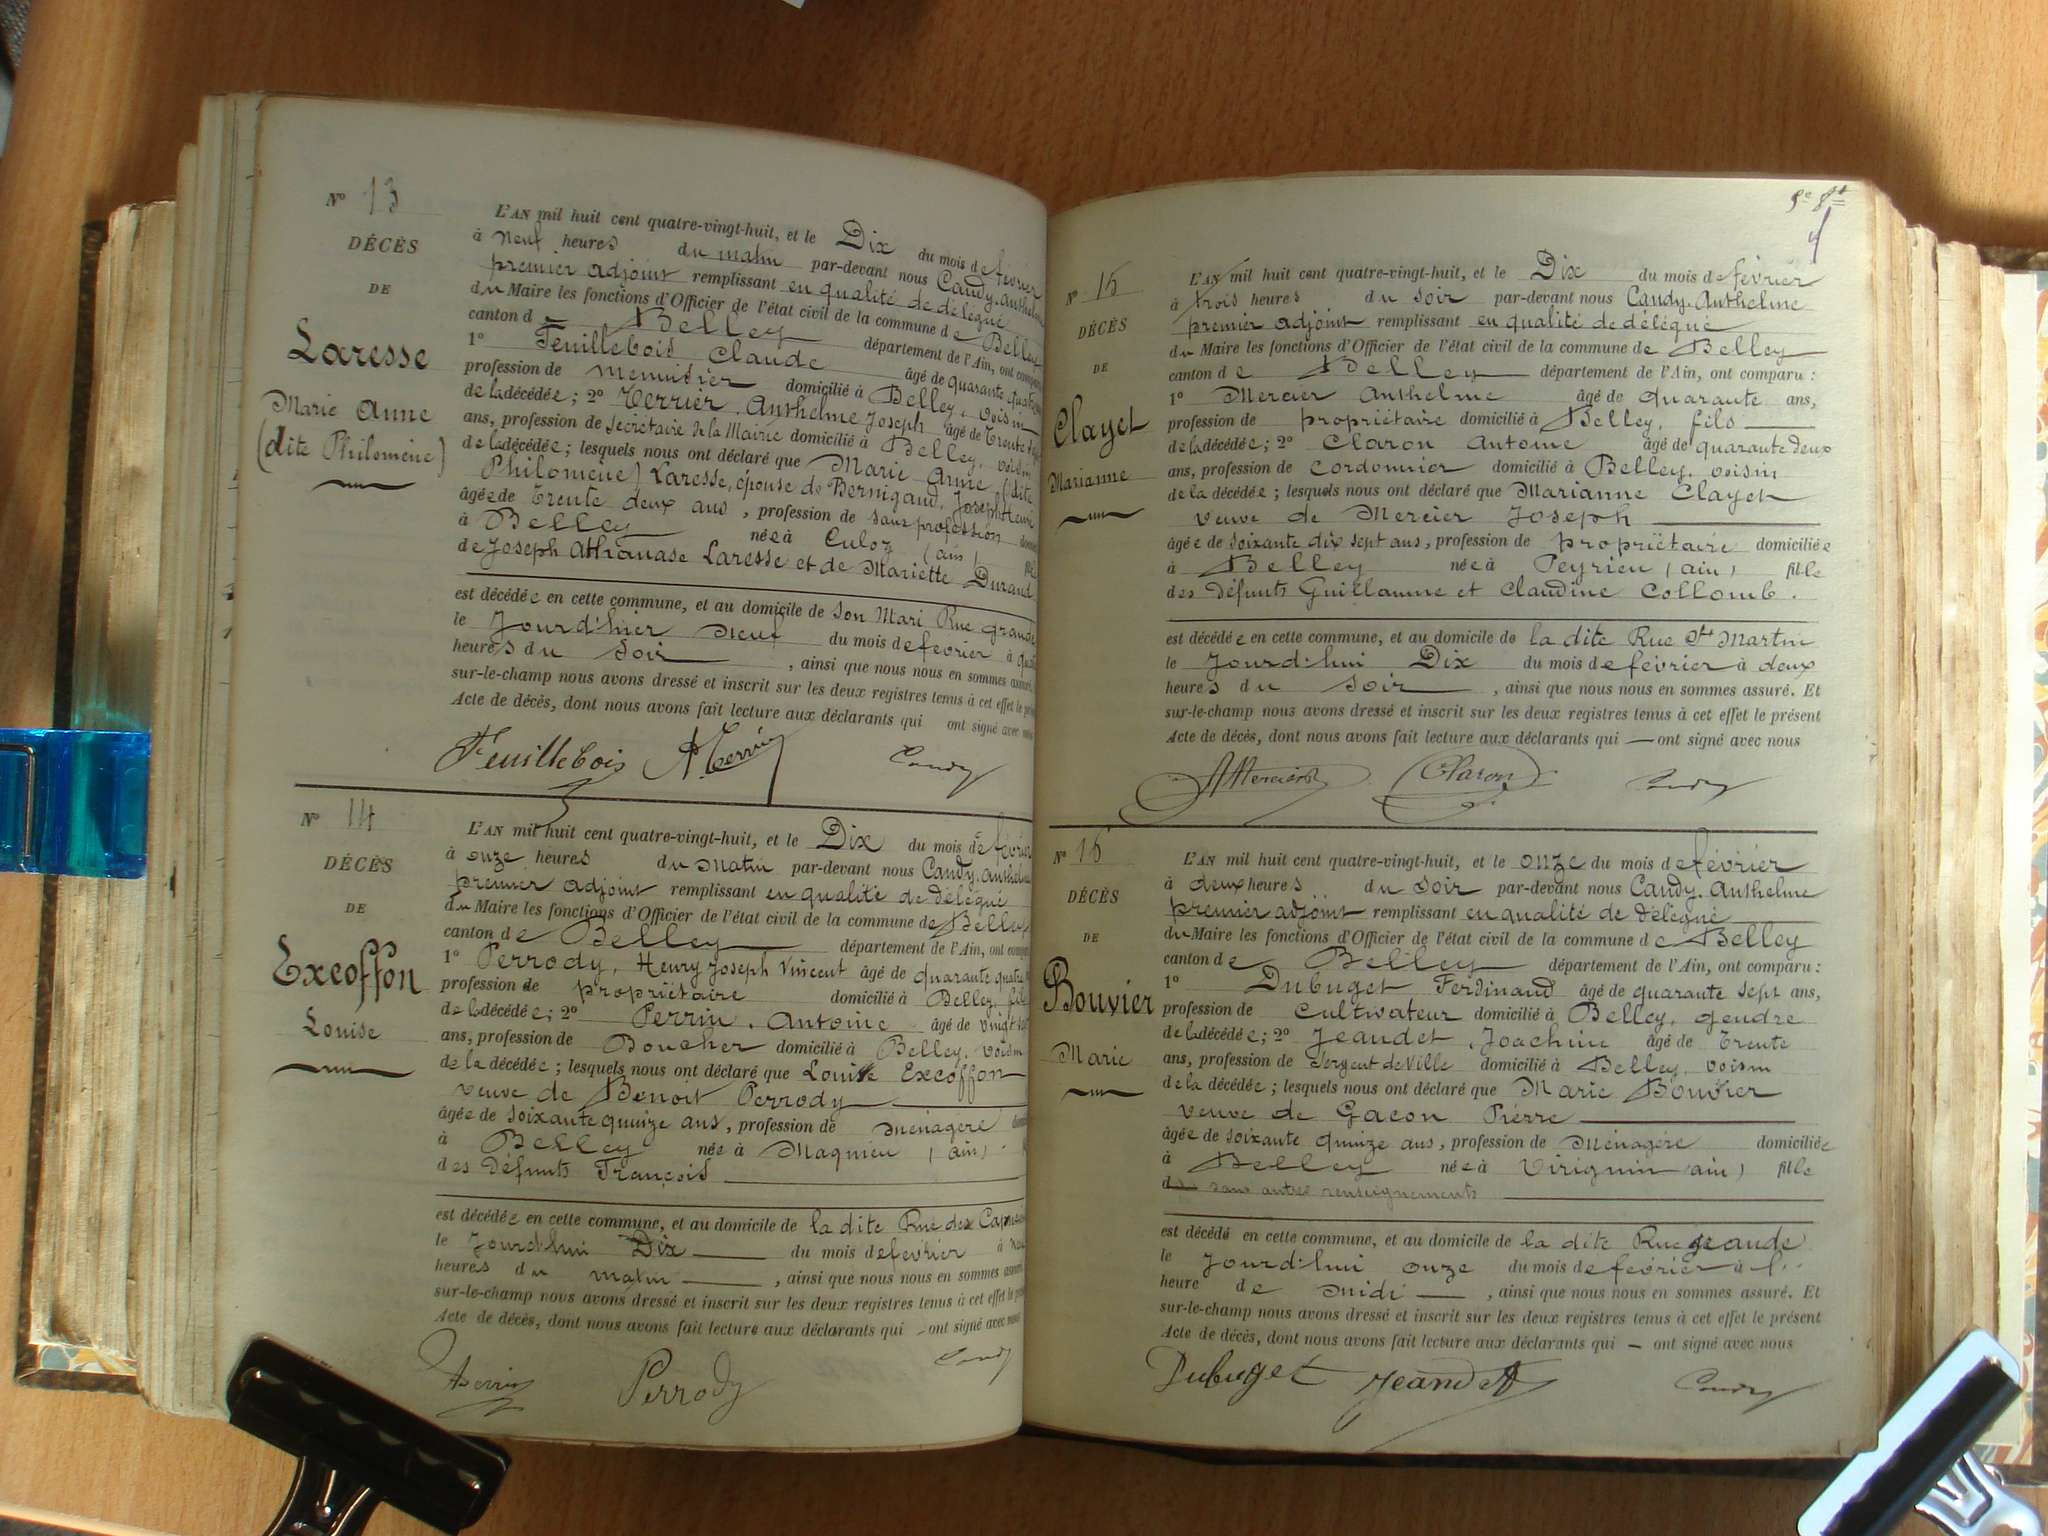 N° 13
DÉCÈS
DE
Laresse
Marie Anne
(dite Philomène)
L'AN mil huit cent quatre-vingt-huit, et le Dix du mois de février
à neuf heures du matin par-devant nous Candy Anthelme
premier adjoint remplissant en qualité de délégué
du Maire les fonctions d'Officier de l'état civil de la commune de Belley
canton de Belley département de l'Ain, ont comparu
1° Feuillebois Claude âgé de quarante quatre
profession de menuisier domicilié à Belley, voisin
de la décédée; 2° Terrier, Anthelme Joseph âgé de Trente
ans, profession de Secrétaire de la Mairie domicilié à Belley, voisin
de la décédée; lesquels nous ont déclaré que Marie Anne (dite
Philomène) Laresse, épouse de Bernigaud, Joseph Henri
âgée de Trente deux ans, profession de sans profession
à Belley née à Culoz (ain)
de Joseph Athanase Laresse et de Mariette Durand.
est décédée en cette commune, et au domicile de Son Mari Rue grande
le Jourd'hier neuf du mois de février à
heures du Soir, ainsi que nous nous en sommes assuré.
sur-le-champ nous avons dressé et inscrit sur les deux registres tenus à cet effet le
Acte de décès, dont nous avons fait lecture aux déclarants qui ont signé avec nous
Feuillebois A. Terrier Candy
N° 14
DÉCÈS
DE
Excoffon
Louise
L'AN mil huit cent quatre-vingt-huit, et le Dix du mois de février
à onze heures du Matin par-devant nous Candy, Anthelme
premier adjoint remplissant en qualité de délégué
du Maire les fonctions d'Officier de l'état civil de la commune de Belley
canton de Belley département de l'Ain, ont
1° Perrody, Henry Joseph Vincent âgé de quarante quatre
profession de propriétaire domicilié à Belley, fils
de la décédée; 2° Perrin, Antoine âgé de vingt
ans, profession de Boucher domicilié à Belley, voisin
de la décédée; lesquels nous ont déclaré que Louise Excoffon
veuve de Benoit Perrody
âgée de soixante quinze ans, profession de ménagère
à Belley née à Magnieu (ain)
des Défunts François
est décédée en cette commune, et au domicile de la dite Rue des
le Jourd'hui Dix du mois de février à
heures du matin, ainsi que nous nous en sommes assuré.
sur-le-champ nous avons dressé et inscrit sur les deux registres tenus à cet effet le
Acte de décès, dont nous avons fait lecture aux déclarants qui ont signé avec nous
Perrin Perrody Candy
N° 15
DÉCÈS
DE
Clayet
Marianne
L'AN mil huit cent quatre-vingt-huit, et le Dix du mois de février
à trois heures du soir par-devant nous Candy, Anthelme
premier adjoint remplissant en qualité de délégué
du Maire les fonctions d'Officier de l'état civil de la commune de Belley
canton de Belley département de l'Ain, ont comparu :
1° Mercier Anthelme âgé de quarante ans,
profession de propriétaire domicilié à Belley, fils
de la décédée; 2° Claron Antoine âgé de quarante deux
ans, profession de cordonnier domicilié à Belley, voisin
de la décédée; lesquels nous ont déclaré que Marianne Clayet
veuve de Mercier Joseph
âgée de soixante dix sept ans, profession de propriétaire domiciliée
à Belley née à Peyrieu (ain) fille
des Défunts Guillaume et Claudine Collomb.
est décédée en cette commune, et au domicile de la dite Rue St Martin
le Jourd'hui Dix du mois de février à deux
heures du soir, ainsi que nous nous en sommes assuré. Et
sur-le-champ nous avons dressé et inscrit sur les deux registres tenus à cet effet le présent
Acte de décès, dont nous avons fait lecture aux déclarants qui ont signé avec nous
Mercier Claron Candy
N° 16
DÉCÈS
DE
Bouvier
Marie
L'AN mil huit cent quatre-vingt-huit, et le onze du mois de février
à deux heures du Soir par-devant nous Candy, Anthelme
premier adjoint remplissant en qualité de délégué
du Maire les fonctions d'Officier de l'état civil de la commune de Belley
canton de Belley département de l'Ain, ont comparu :
1° Dubuget Ferdinand âgé de quarante sept ans,
profession de cultivateur domicilié à Belley, gendre
de la décédée; 2° Jeandet, Joachim âgé de Trente
ans, profession de Sergent de Ville domicilié à Belley, voisin
de la décédée; lesquels nous ont déclaré que Marie Bouvier
veuve de Gacon Pierre
âgée de soixante quinze ans, profession de Ménagère domiciliée
à Belley née à Virignin (ain) fille
sans autres renseignements
est décédé en cette commune, et au domicile de la dite Rue grande
le Jourd'hui onze du mois de février à
heure de midi, ainsi que nous nous en sommes assuré. Et
sur-le-champ nous avons dressé et inscrit sur les deux registres tenus à cet effet le présent
Acte de décès, dont nous avons fait lecture aux déclarants qui ont signé avec nous
Dubuget Jeandet Candy